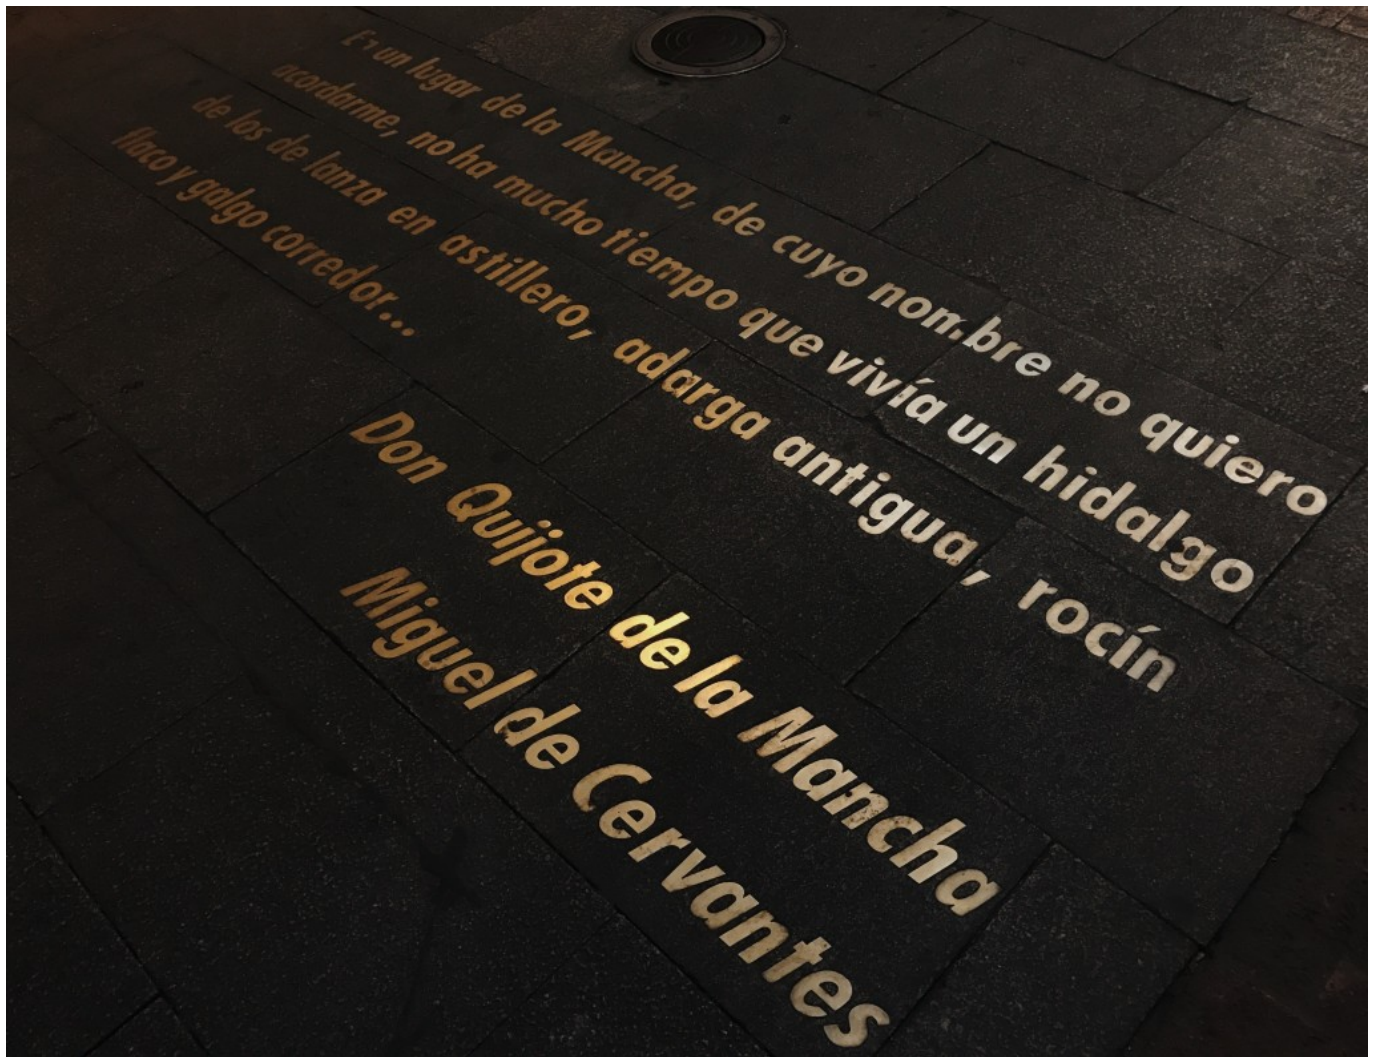 En un lugar de la Mancha, de cuyo nombre no quiero
acordarme, no ha mucho tiempo que vivía un hidalgo
de los de lanza en astillero, adarga antigua, rocín
flaco y galgo corredor...
Don Quijote de la Mancha
Miguel de Cervantes